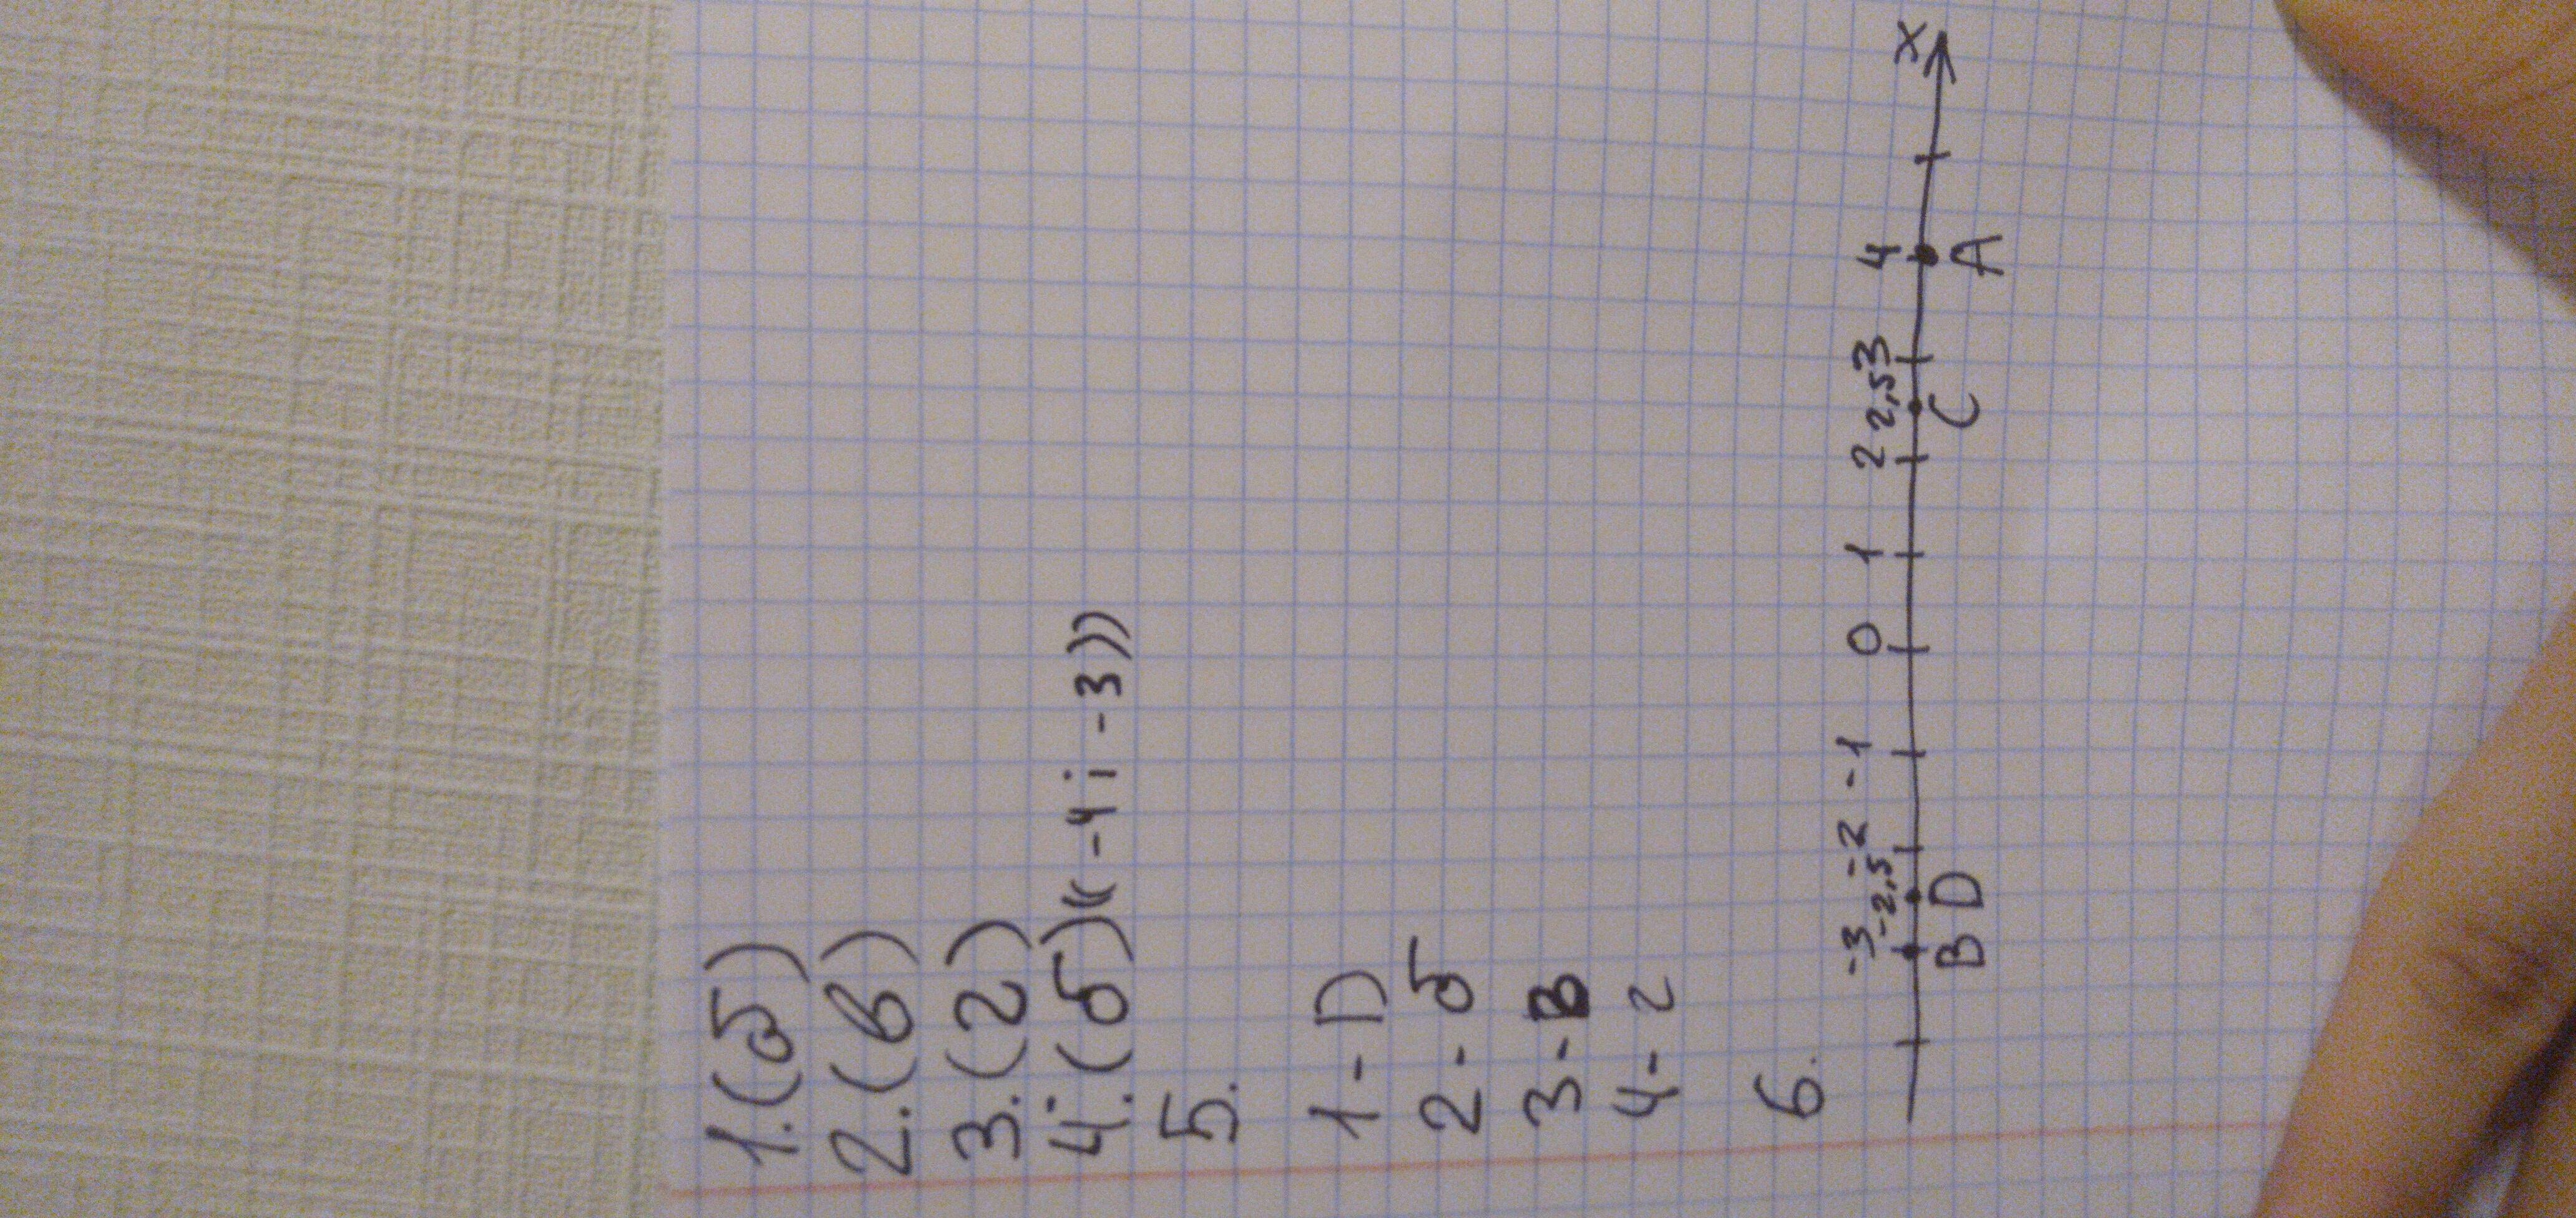 1. (б)
2. (в)
3. (г)
4. (б) ((-4 і -3))
5.
1 - D
2 - б
3 - В
4 - г
6.
-3 -2,5 -2 -1 0 1 2 2,5 3 4 x
B D C A